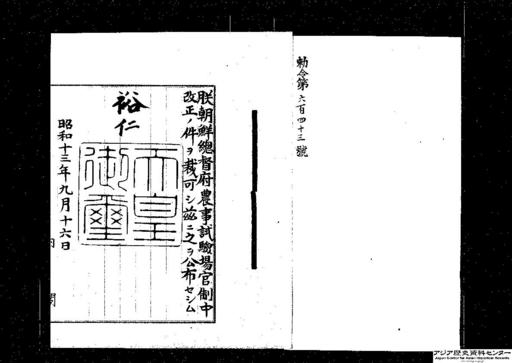 勅令第六百四十三號
朕朝鮮總督府農事試驗場官制中
改正ノ件ヲ裁可シ茲ニ之ヲ公布セシム
裕仁
天皇
御璽
昭和十三年九月十六日
内閣
アジア歴史資料センター
Japan Center for Asian Historical Records